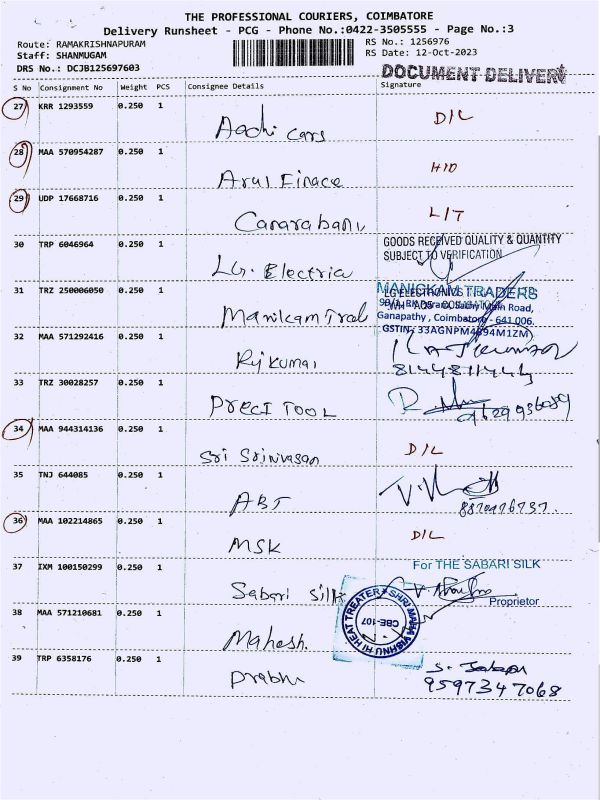 THE PROFESSIONAL COURIERS, COIMBATORE
Delivery Runsheet - PCG - Phone No.:0422-3505555 - Page No.:3
Route: RAMAKRISHNAPURAM RS No.: 1256976
Staff: SHANMUGAM RS Date: 12-Oct-2023
DRS No.: DCJB125697603 DOCUMENT DELIVERY
S No Consignment No Weight PCS Consignee Details Signature
27 KRR 1293559 0.250 1 Aadhi cars D/L
28 MAA 570954287 0.250 1 Arul Finace H/D
29 UDP 17668716 0.250 1 Canarabank L/T
GOODS RECEIVED QUALITY & QUANTITY
SUBJECT TO VERIFICATION
30 TRP 6046964 0.250 1 LG. Electric
MANICKAM TRADERS
LG ELECTRONICS
Main Road,
Ganapathy, Coimbatore - 641 006.
GSTIN: 33AGNPM4694M1ZM
31 TRZ 250006050 0.250 1 Manikam Trad
32 MAA 571292416 0.250 1 Rjkumar
33 TRZ 30028257 0.250 1 PRECI TOOL
34 MAA 944314136 0.250 1 Sri Srinivasan D/L
35 TNJ 644085 0.250 1 ABT
36 MAA 102214865 0.250 1 MSK D/L
37 IXM 100150299 0.250 1 Sabari Silk
For THE SABARI SILK
Proprietor
38 MAA 571210681 0.250 1 Mahesh.
SHRI MAHA VISHNU HI HEAT TREATER
CBE-107
39 TRP 6358176 0.250 1 Prabhu
9597347068